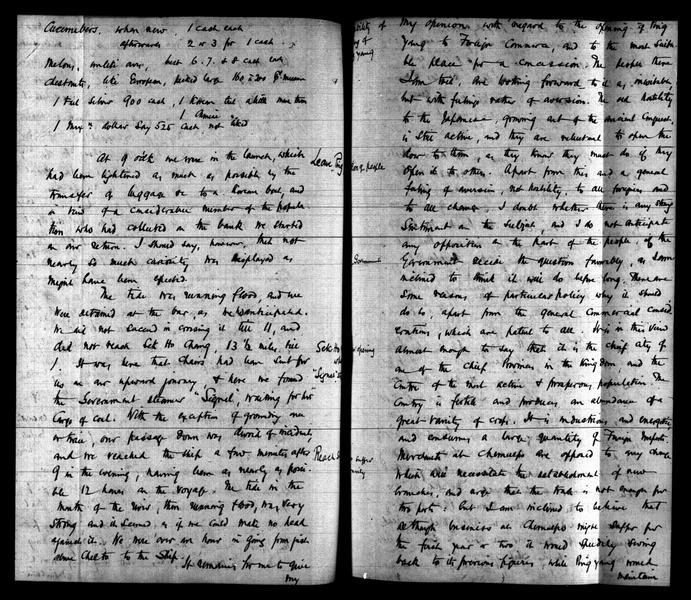 Cucumbers, when new, 1 cash each
afterwards 2 or 3 for 1 cash.
Melons, small ones, best 6.7. & 8 cash each
Chestnuts, like European,
1 Tael Silver 900 cash,
1 Mex. dollar say 525 cash, not liked
At 9 o'clk we were in the launch, which
had been lightened as much as possible by the
transfer of luggage &c to a Korean boat, and
in view of a considerable number of the popula
tion who had collected on the bank we started
on our return. I should say, however, that not
nearly so much curiosity was displayed as
might have been expected.
The tide was running flood, and we
were detained at the bar, as we had anticipated.
We did not succeed in crossing it till 11, and
did not reach Sek Ho Chang, 13 ½ miles, till
1. It was here that chairs had been sent for
us on our upward journey, & here we found
the Government steamer "Signal", waiting for her
Cargo of coal. With the exception of grounding once
or twice, our passage down was devoid of incident,
and we reached the ship a few minutes after
9 in the evening, having been as nearly as possi
ble 12 hours on the voyage. The tide in the
mouth of the river, then running flood, was very
strong and it seemed as if we could make no head
against it. We were over an hour in going from just
above to the Ship.
It remains for me to give
my
Leave Ping
Sek Ho
"Signal"
Reach S
My opinion with regard to the opening of Ping
Yang to Foreign Commerce, and to the most suita
ble place for a concession. The people there
I am told, are looking forward to it as inevitable,
but with feelings rather of aversion. The old hostility
to the Japanese, growing out of the ancient conquest,
is still active, and they are reluctant to open the
door to them, as they know they must do if they
open it to others. Apart from this, and a general
feeling of aversion, not hostility, to all foreigners and
to all change, I doubt whether there is any strong
sentiment on the subject, and I do not anticipate
any opposition on the part of the people, if the
Government decide the question favorably, as I am
inclined to think it will do before long. There are
some reasons of particular policy why it should
do so, apart from the general Commercial consid
erations, which are patent to all. It is in this view
almost enough to say that it is the chief city of
one of the chief Provinces in the Kingdom, and the
centre of the most active & prosperous population. The
country is fertile and produces an abundance of a
great variety of crops. It is industrious and energetic
and consumes a large quantity of Foreign Imports.
Merchants at Chemulpo are opposed to any change
which would necessitate the establishment of new
branches, and urge that the trade is not enough for
two ports. But I am inclined to believe that
although business at Chemulpo might suffer for
the first year or two it would speedily swing
back to its previous figures, while Pingyang would
maintain